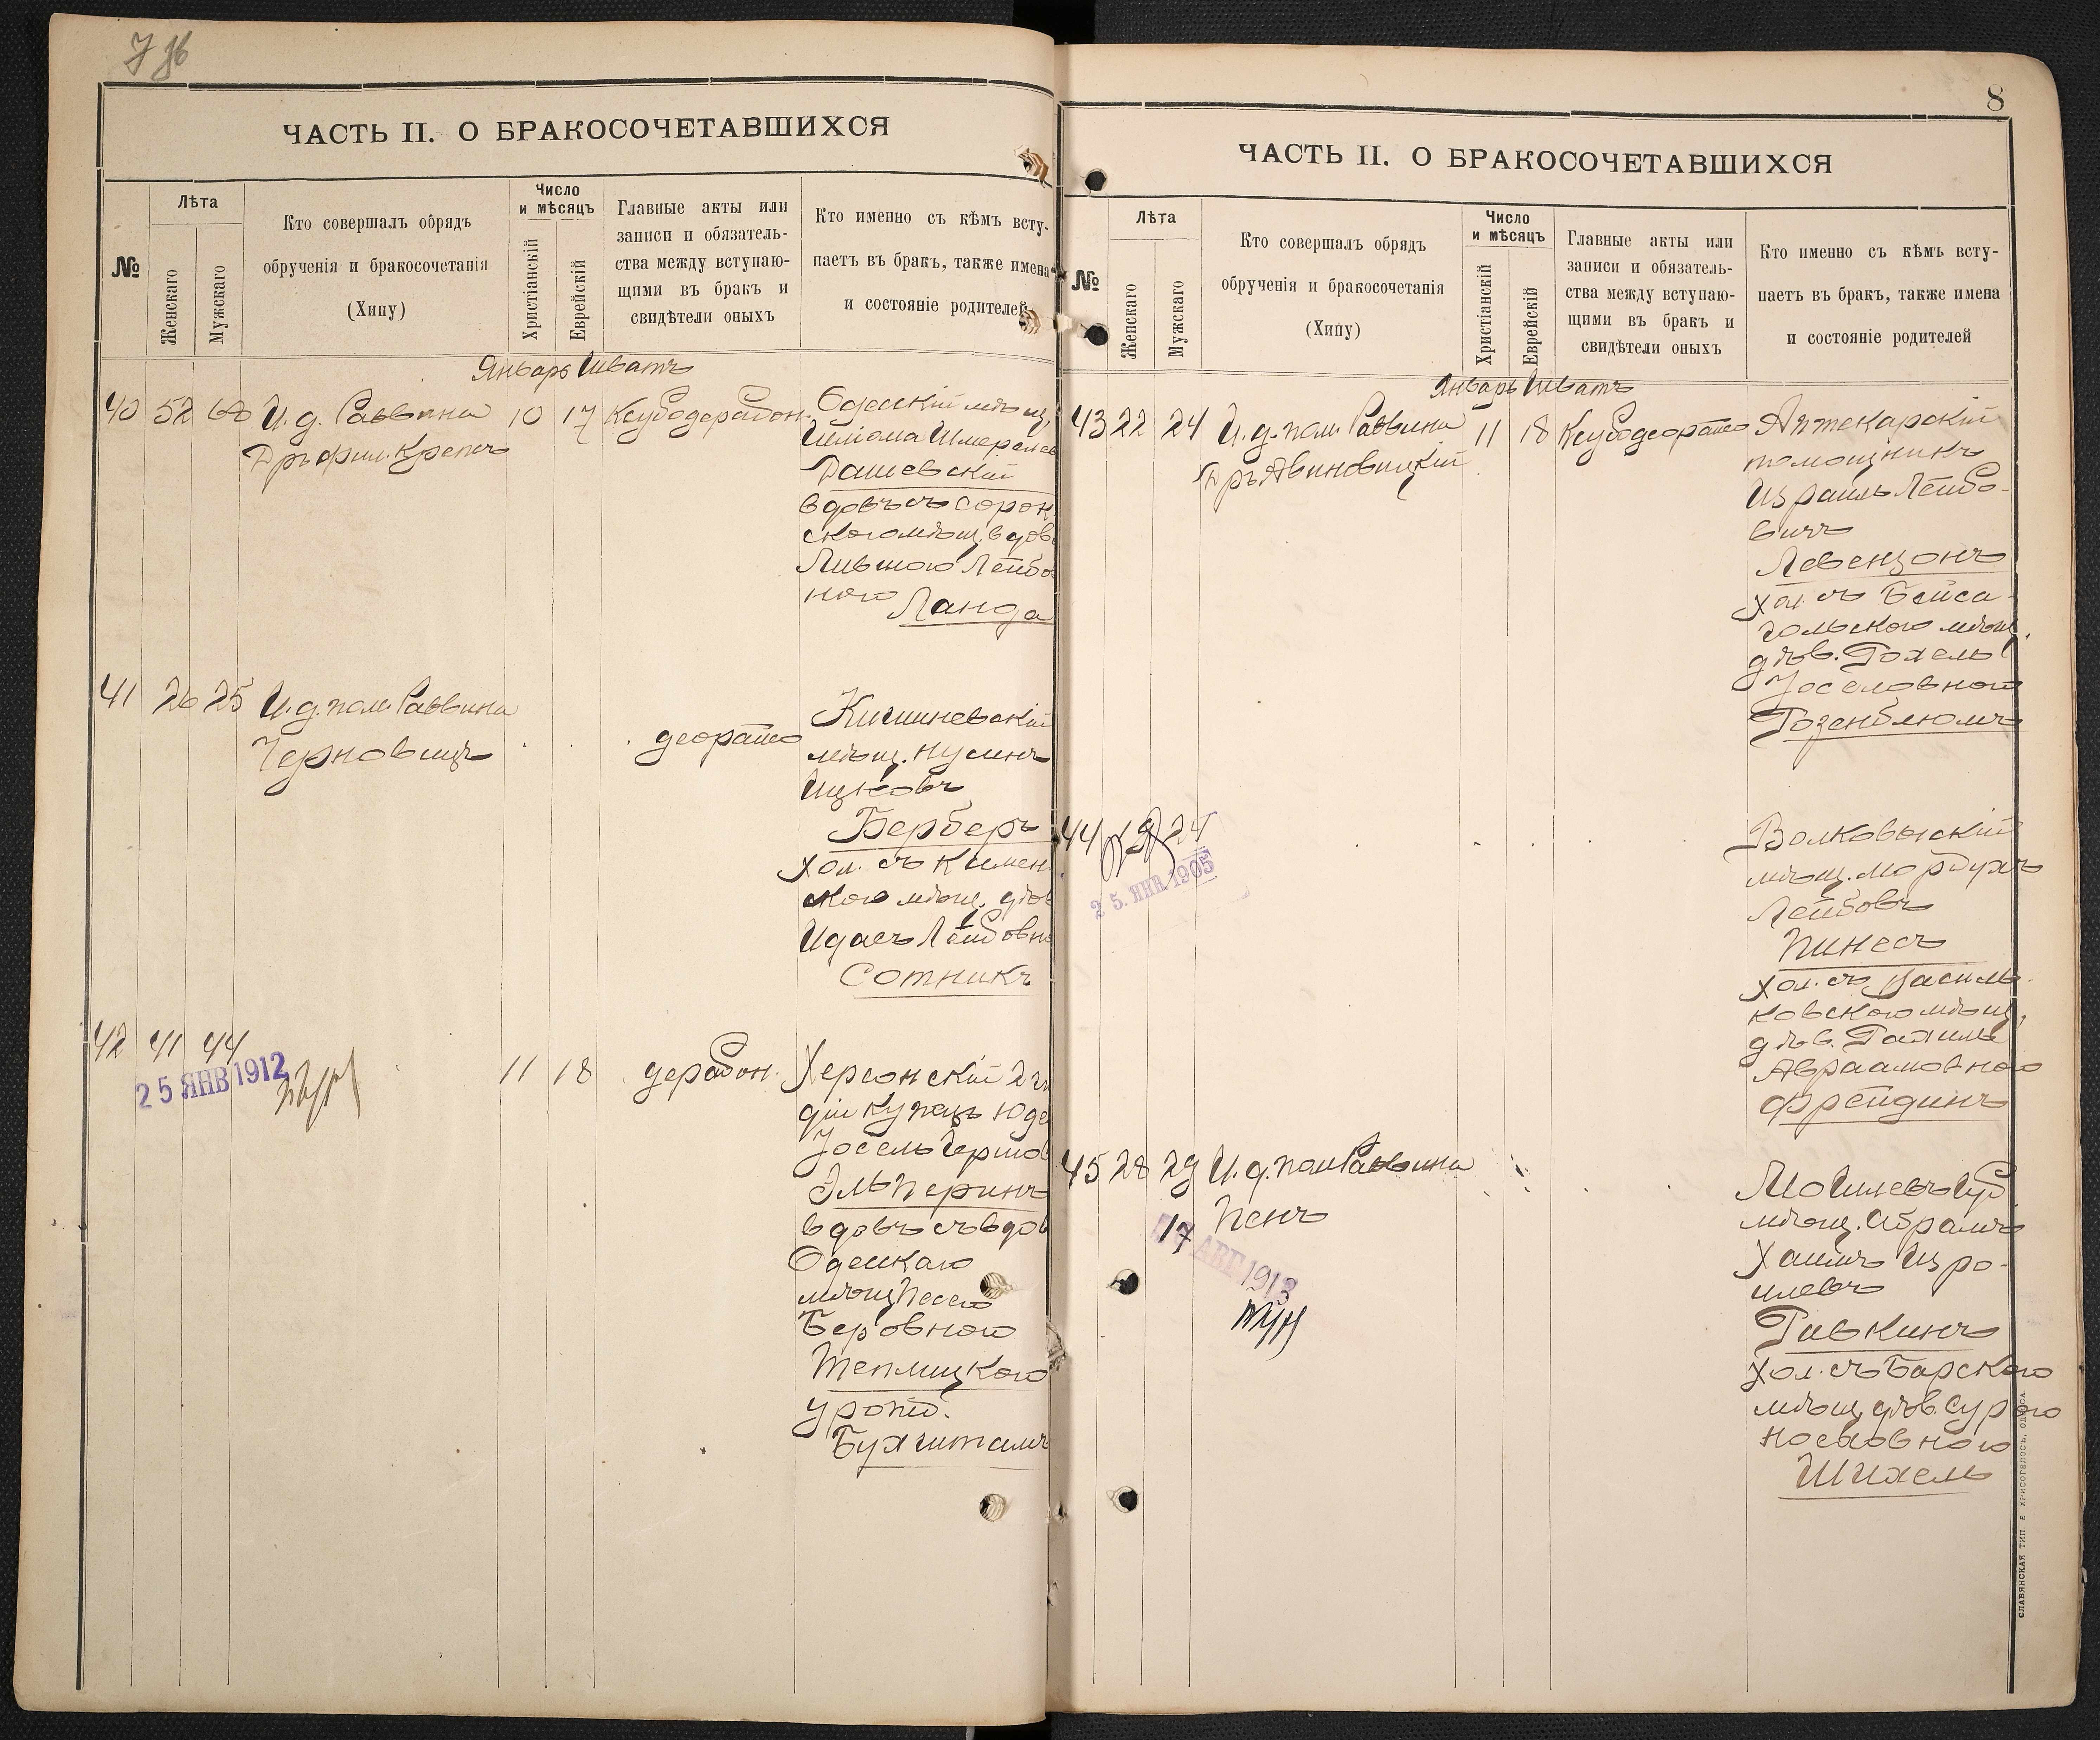 ЧАСТЬ II. О БРАКОСОЧЕТАВШИХСЯ
№
Лѣта
Женскаго
Мужскаго
Кто совершалъ обрядъ
обрученія и бракосочетанія
(Хипу)
Число
и мѣсяцъ
Христіанскій
Еврейскій
Главные акты или
записи и обязатель-
ства между вступаю-
щими въ бракъ и
свидѣтели оныхъ
Кто именно съ кѣмъ всту-
паетъ въ бракъ, также имена
и состояніе родителей
Январь Шватъ
40 52 И. д. Раввина 10 17
Дръ фил. Крепсъ
Одесскій мѣщ.
Шлiома Шмерелев
Дашевскій
вдовъ съ Сорок
скою мѣщ. вдов
Лившою Лейбов
ною Ланда
41 26 25 И. д. пом. Раввина
Черновицъ
Кишиневскій
мѣщ. Нусинъ
Ицковъ
Берберъ
хол. съ Камен
скою мѣщ. дѣв
Идаеъ Лейбовно
Сотникъ
42 41 44 11 18
25 ЯНВ 1912
Херсонскій 2 ги
діи купецъ Юде
Іосель Гершов
Эльперинъ
вдовъ съ вдов
Одесскаю
мѣщ Песею
Беровною
Теплицкою
урожд.
Бухштамъ
8
ЧАСТЬ II. О БРАКОСОЧЕТАВШИХСЯ
№
Лѣта
Женскаго
Мужскаго
Кто совершалъ обрядъ
обрученія и бракосочетанія
(Хипу)
Число
и мѣсяцъ
Христіанскій
Еврейскій
Главные акты или
записи и обязатель-
ства между вступаю-
щими въ бракъ и
свидѣтели оныхъ
Кто именно съ кѣмъ всту-
паетъ въ бракъ, также имена
и состояніе родителей
Январь Шватъ
43 22 24 И. д. пом. Раввина 11 18
Дръ Авиновицкій
Аптекарскій
помощникъ
Израиль Лейбо-
вичъ
Левензонъ
хол. съ Бейса-
гольскою мѣщ.
дѣв. Рохелью
Іоселовною
Розенблюмъ
44 19 24
25. ЯНВ. 1905
Волковыскій
мѣщ. Мордухъ
Лейбовъ
Пинесъ
хол. съ Василь-
ковскою мѣщ.
дѣв. Рахилью
Авраамовною
Фрейдинъ
45 28 29 И. д. пом Раввина
Пенъ
17 АВГ. 1913
Могилевъ Губ
мѣщ. Абрамъ
Хаимъ Изра-
илевъ
Ривкинъ
хол. съ Барскою
мѣщ. дѣв. Сурою
Шихель
СЛАВЯНСКАЯ ТИП. Е ХРИСОГЕЛОСЪ, ОДЕССА